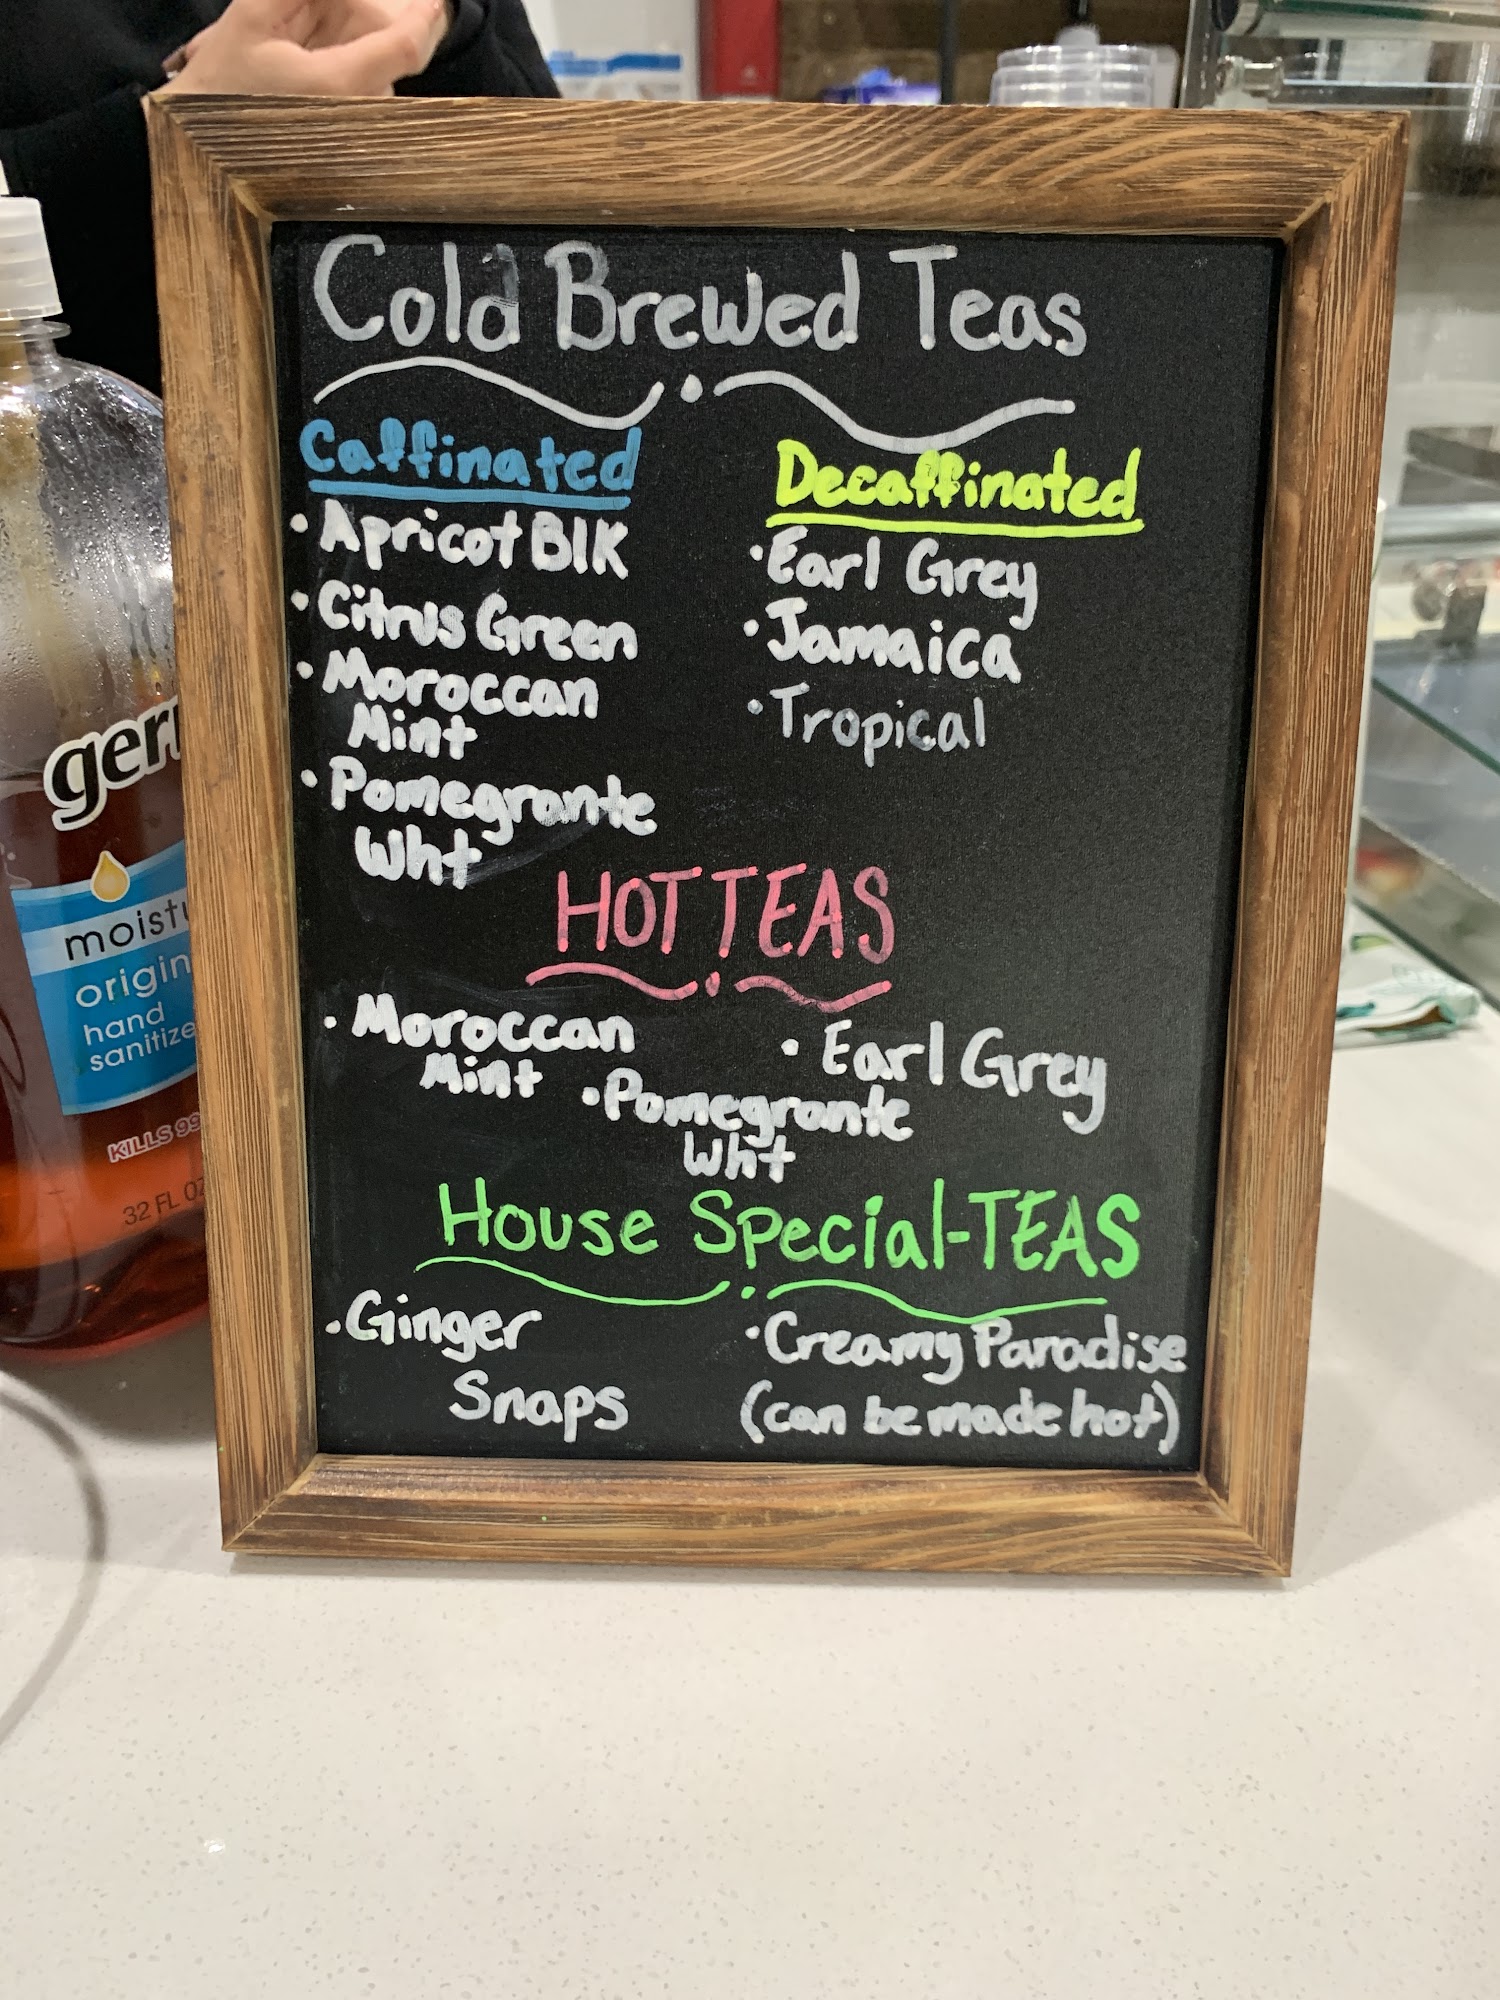 Cold Brewed Teas
Caffinated
• Apricot Blk
• Citrus Green
• Moroccan
Mint
• Pomegrante
Wht
Decaffinated
• Earl Grey
• Jamaica
• Tropical
HOT TEAS
• Moroccan
Mint
• Earl Grey
• Pomegrante
Wht
House Special-TEAS
• Ginger
Snaps
• Creamy Paradise
(can be made hot)
ger
moistu
origin
hand
sanitize
KILLS 99
32 FL OZ